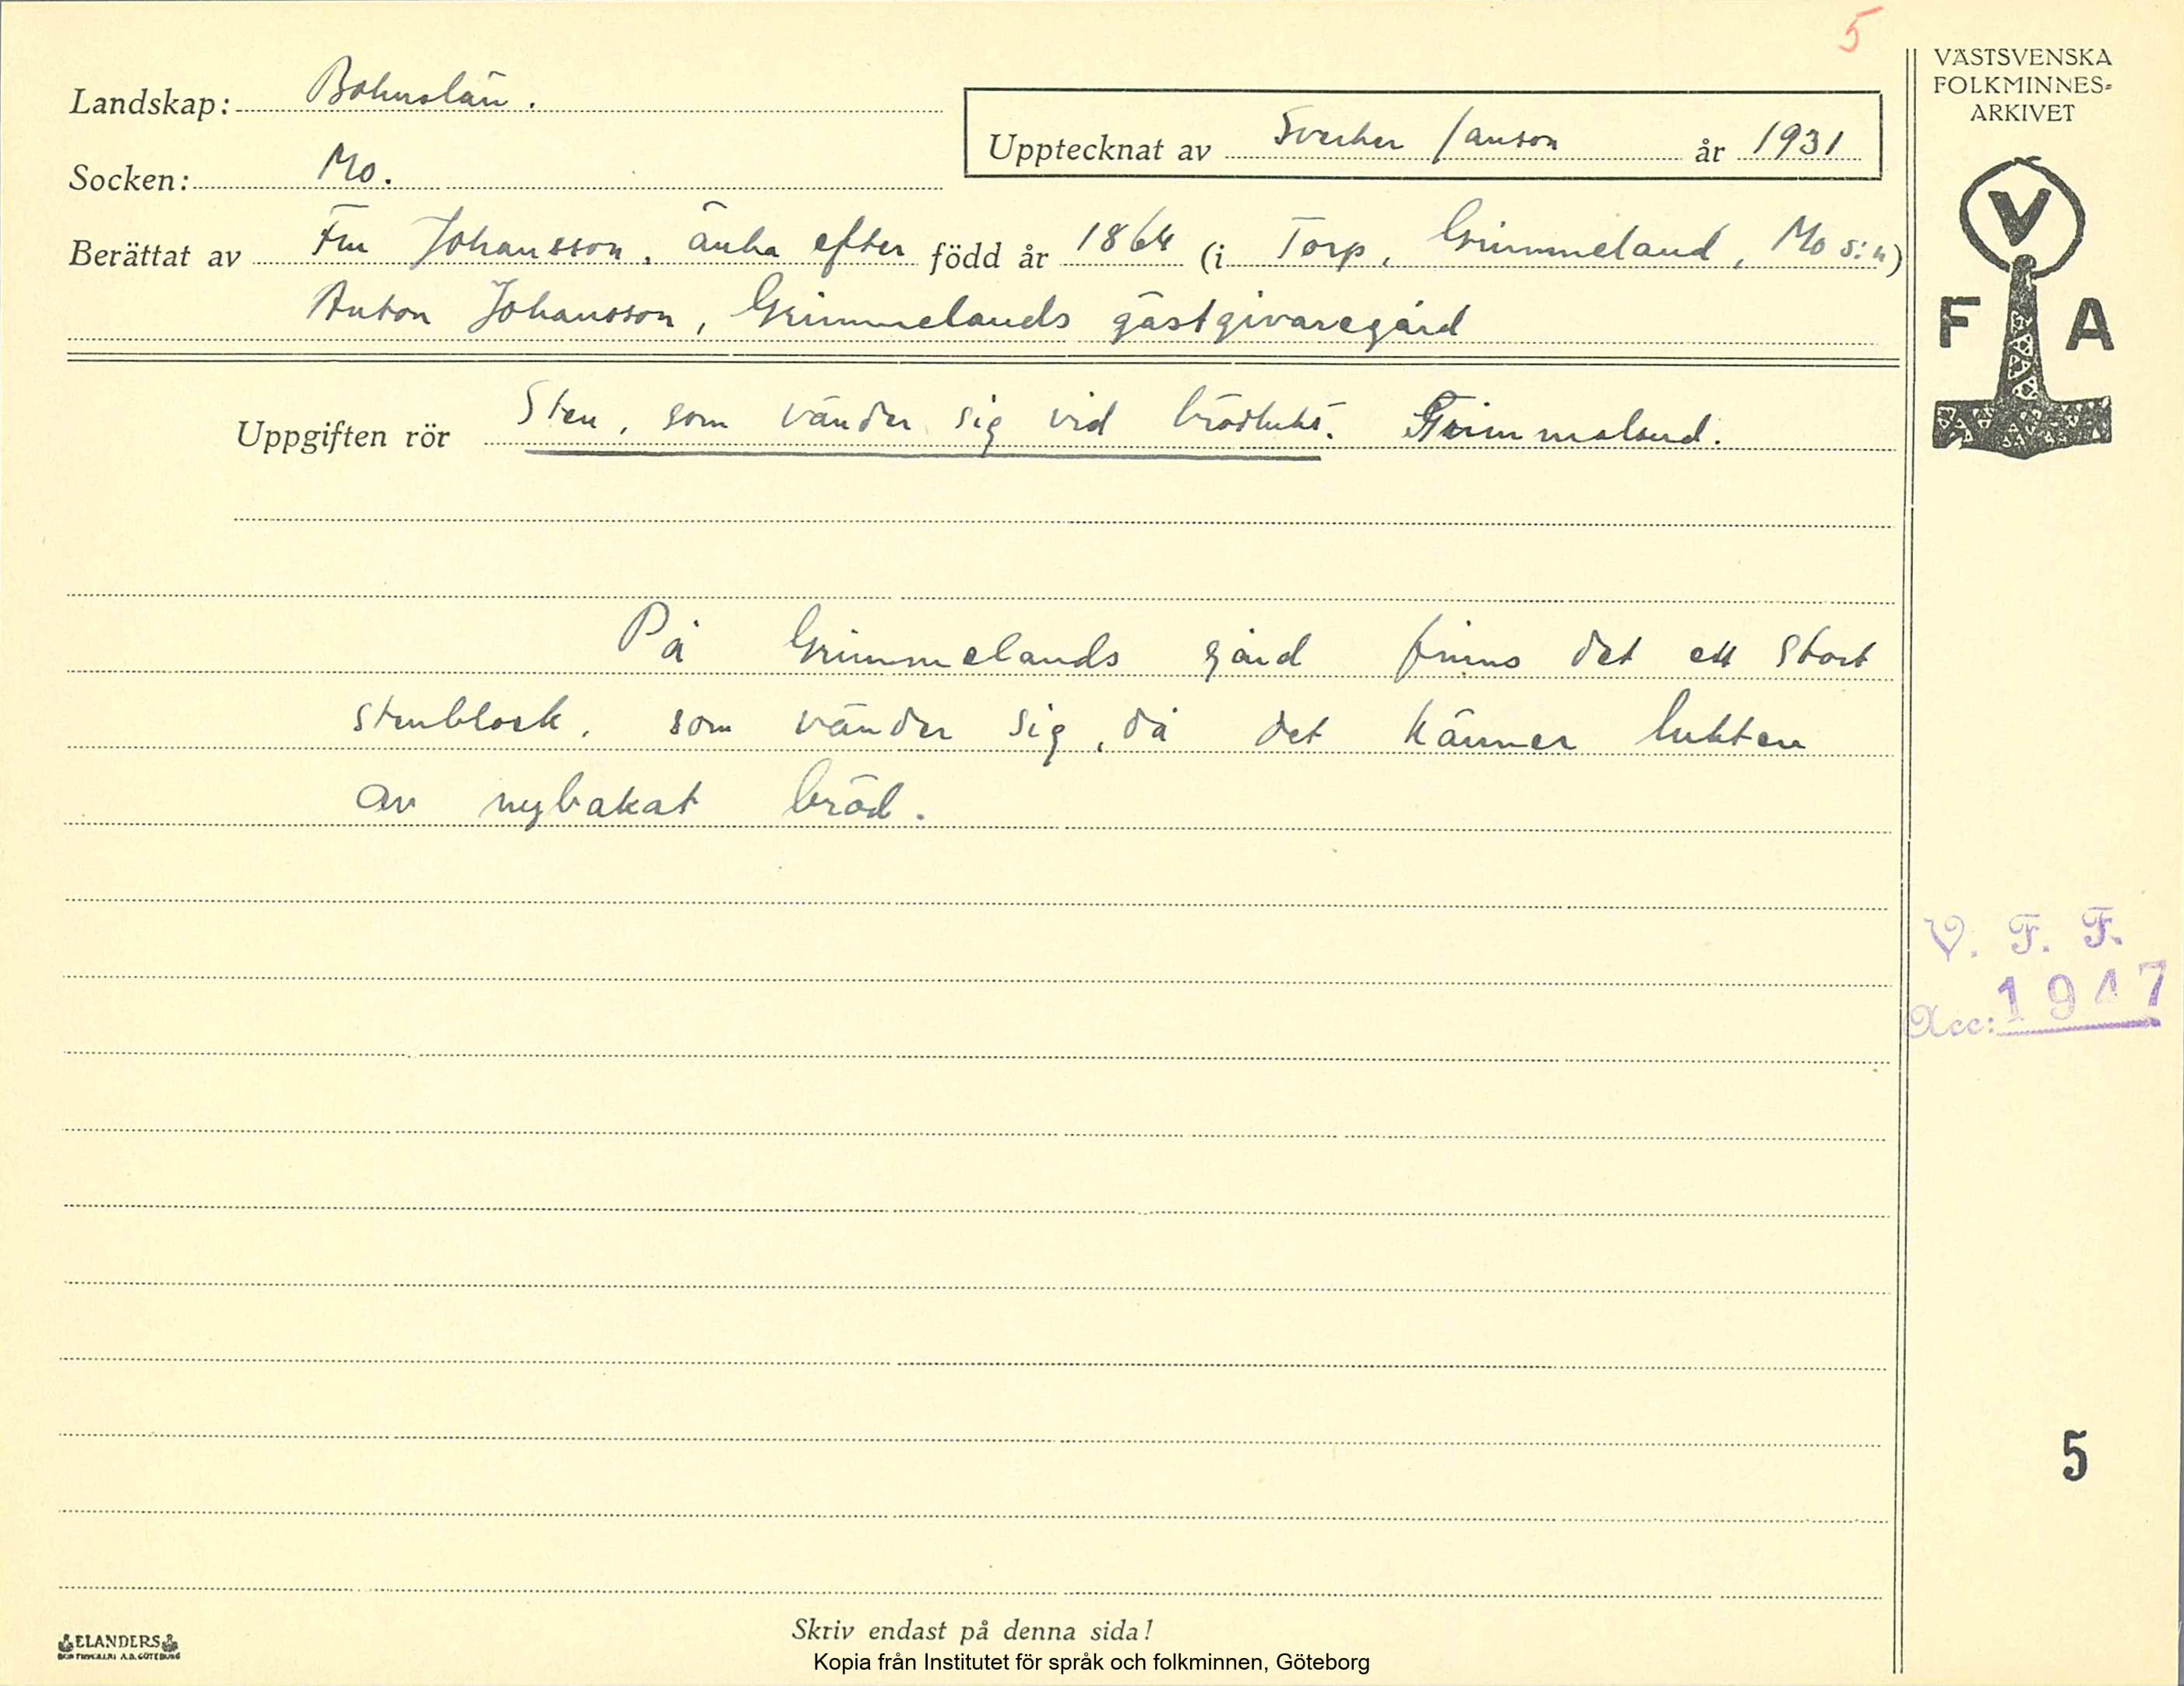 5
VÄSTSVENSKA
FOLKMINNES-
ARKIVET
Landskap: Bohuslän.
Upptecknat av Sverker Janson år 1931
Socken: Mo.
Berättat av Fru Johansson, änka efter född år 1864 (i Torp, Grimmeland, Mo s:n)
Anton Johansson, Grimmelands gästgivaregård
V
F A
Uppgiften rör Sten, som vänder sig vid brödlukt. Grimmeland.
På Grimmelands gård finns det ett stort
stenblock, som vänder sig, då det känner lukten
av nybakat bröd.
V. F. F.
Acc: 1947
5
Skriv endast på denna sida!
ELANDERS
BOKTRYCKERI A.B. GÖTEBORG
Kopia från Institutet för språk och folkminnen, Göteborg